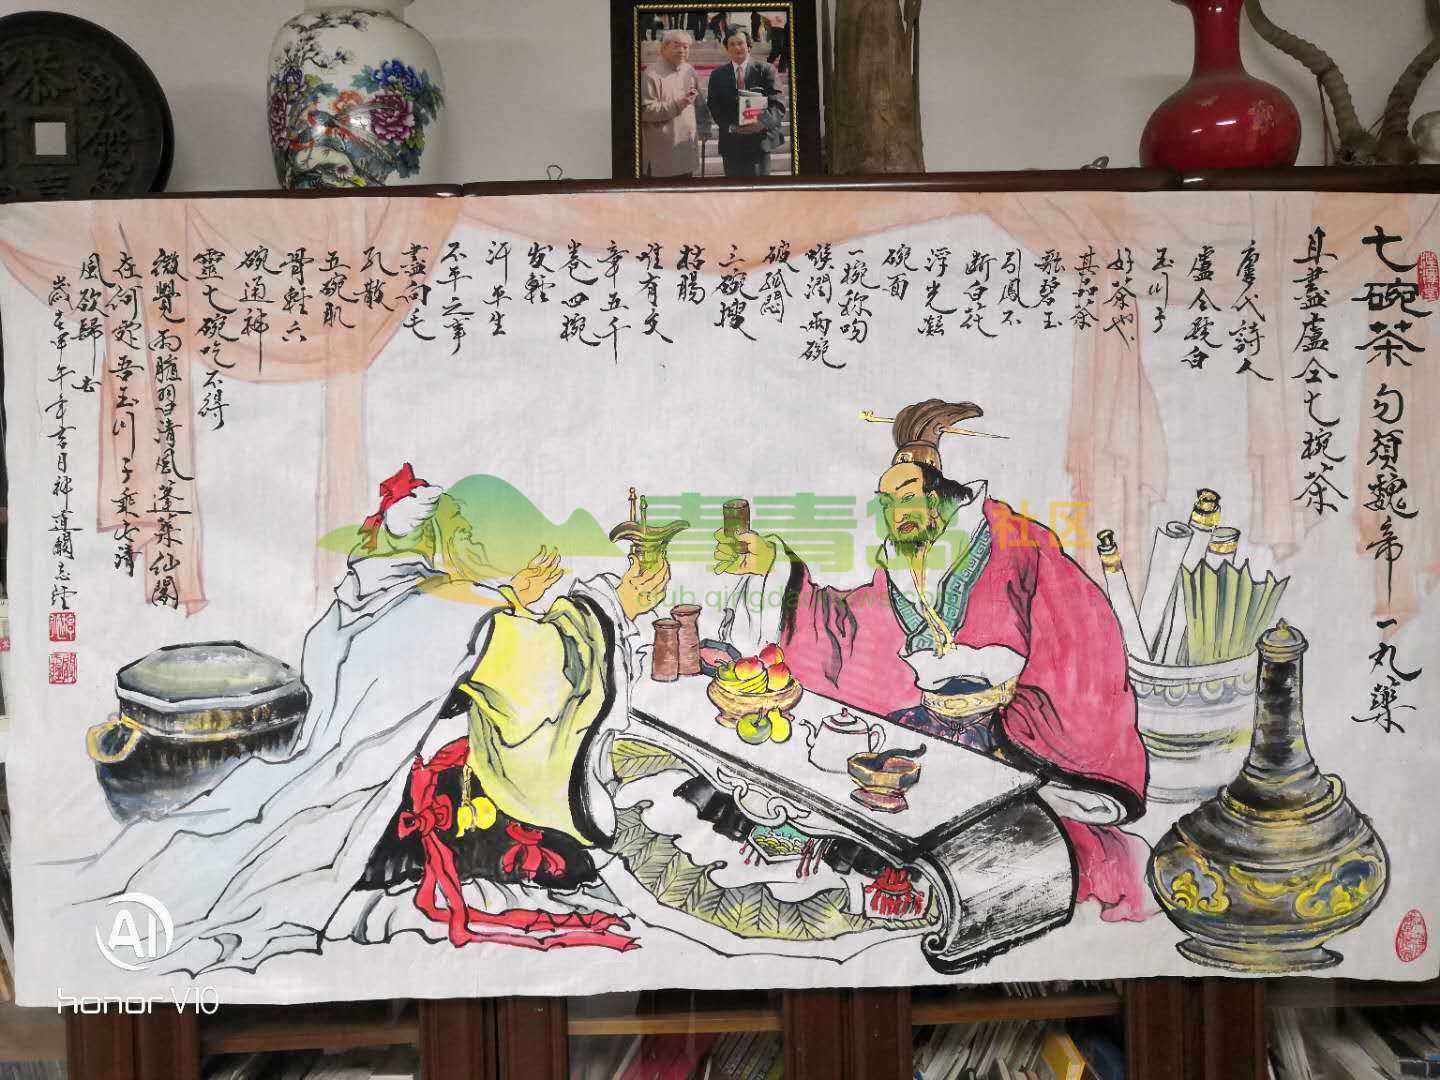 七碗茶
勿須魏帝一丸藥
且盡盧仝七碗茶
唐代詩人
盧仝號白
玉川子
好茶也
其品茶
歌碧玉
引風不
断白花
浮光凝
碗面
一碗称吻
喉潤兩碗
破孤悶
三碗搜
枯腸
唯有文
章五千
卷四碗
发輕
汗平生
不平之事
盡向毛
孔散
五碗肌
骨輕六
碗通神
靈七碗吃不得
微覺兩腋習清風蓬萊仙閣
在何處吾玉川子乘此清
風欲歸
歲在甲午年
青青岛社区
club.qingdaonews.com
AI
honor V10